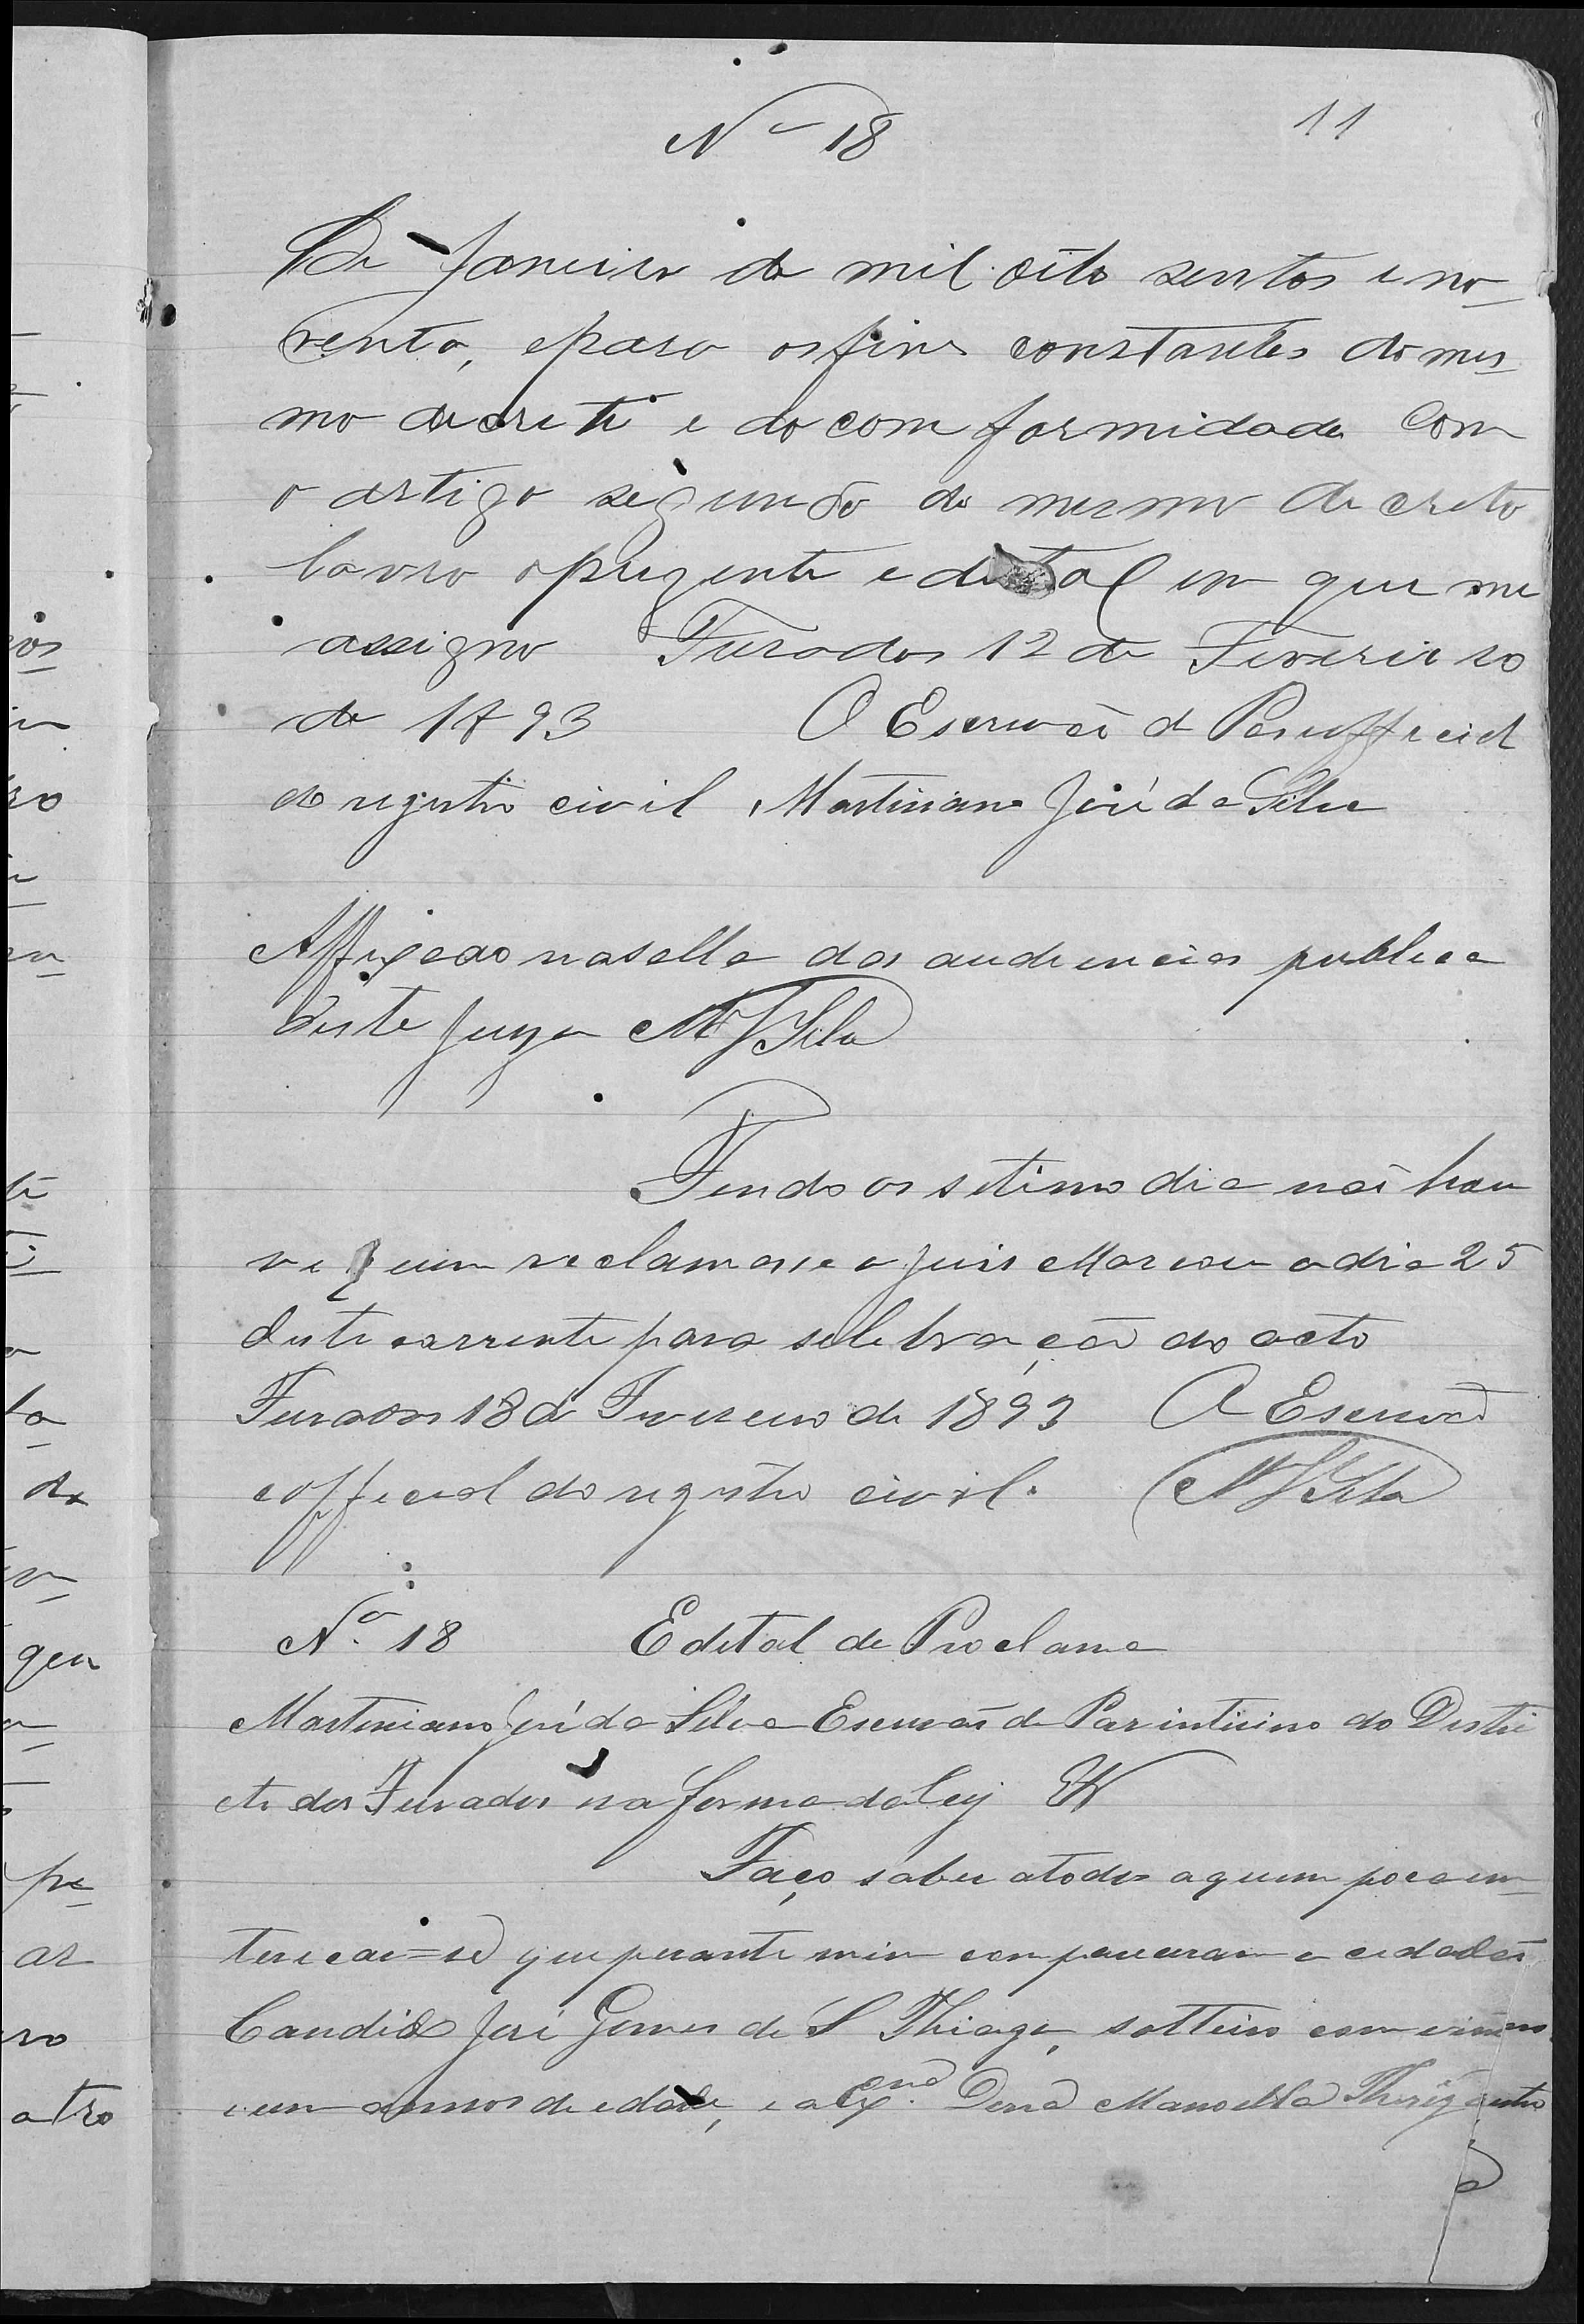 Nº 18
11
De Janeiro de mil oito sentos e no-
venta, epara osfins constantes do mes-
mo decreto e do com formidade Com
o artigo segundo do mesmo decreto
lavro oprezente edital em que me
assigno Furados 12 de Fevereiro
de 1893 O Escrivão d Paz official
do registro civil Martiniano José da Silva
Affixado nasalla das audiencias publica
deste Juizo MJSilva
Findo os setimo dia não hou
ve quem reclamasse o Juis Marcou odia 25
deste corrente para selebração do acto
Furados 18 de Fevereiro de 1893 O Escrivão
eofficial do registro civil. MJSilva
Nº 18 Edital de Proclama
Martiniano José da Silva Escrivão de Paz interino do Destri
cto dos Furados na forma da Ley
Faço saber atodos aquem poca em-
terecar-se que perante mim compareceram o cidadão
Candido José Gomes de S Thiago, solteiro com vinte
e um annos de edade, e a Exma. Dona Manoella